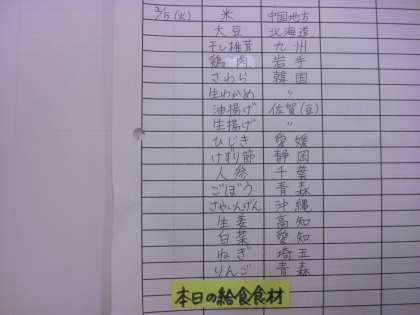 2/5(火) 米 中国地方
大豆 北海道
干し椎茸 九州
鶏肉 岩手
さわら 韓国
生わかめ 〃
油揚げ 佐賀(豆)
生揚げ 〃
ひじき 愛媛
けずり節 静岡
人参 千葉
ごぼう 青森
さやいんげん 沖縄
生姜 高知
白菜 愛知
ねぎ 埼玉
りんご 青森
本日の給食食材